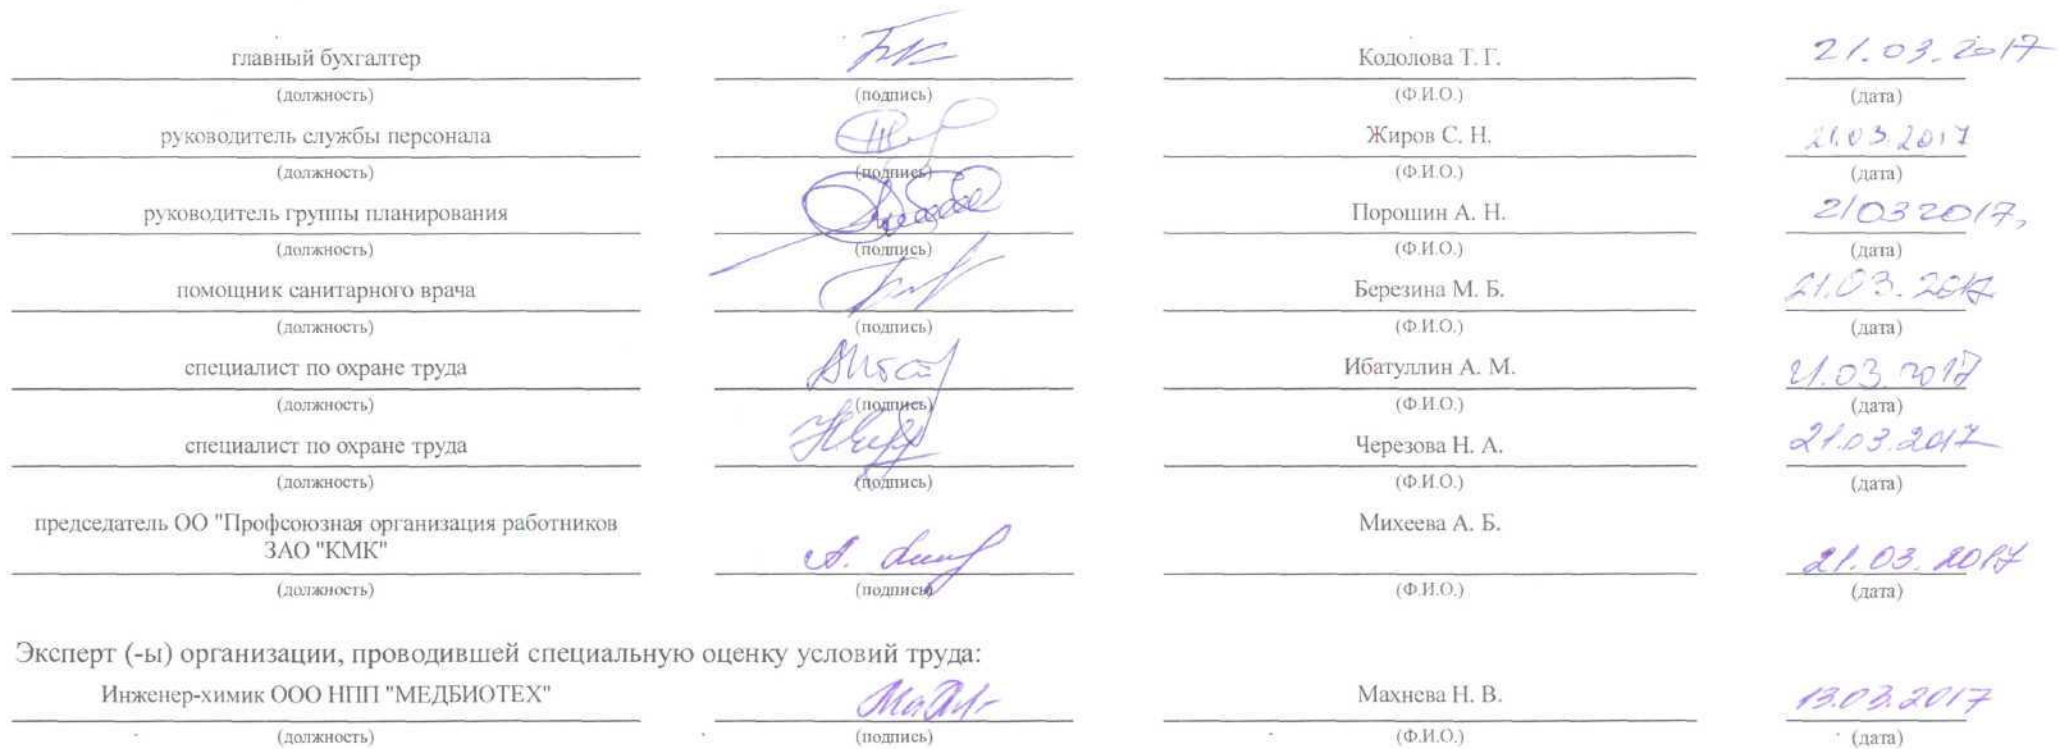 главный бухгалтер Кодолова Т. Г. 21.03.2017
(должность) (подпись) (Ф.И.О.) (дата)
руководитель службы персонала Жиров С. Н. 21.03.2017
(должность) (подпись) (Ф.И.О.) (дата)
руководитель группы планирования Порошин А. Н. 21032017,
(должность) (подпись) (Ф.И.О.) (дата)
помощник санитарного врача Березина М. Б. 21.03.2017
(должность) (подпись) (Ф.И.О.) (дата)
специалист по охране труда Ибатуллин А. М. 21.03.2017
(должность) (подпись) (Ф.И.О.) (дата)
специалист по охране труда Черезова Н. А. 21.03.2017
(должность) (подпись) (Ф.И.О.) (дата)
председатель ОО "Профсоюзная организация работников Михеева А. Б.
ЗАО "КМК" 21.03.2017
(должность) (подпись) (Ф.И.О.) (дата)
Эксперт (-ы) организации, проводившей специальную оценку условий труда:
Инженер-химик ООО НПП "МЕДБИОТЕХ" Махнева Н. В. 13.03.2017
(должность) (подпись) (Ф.И.О.) (дата)